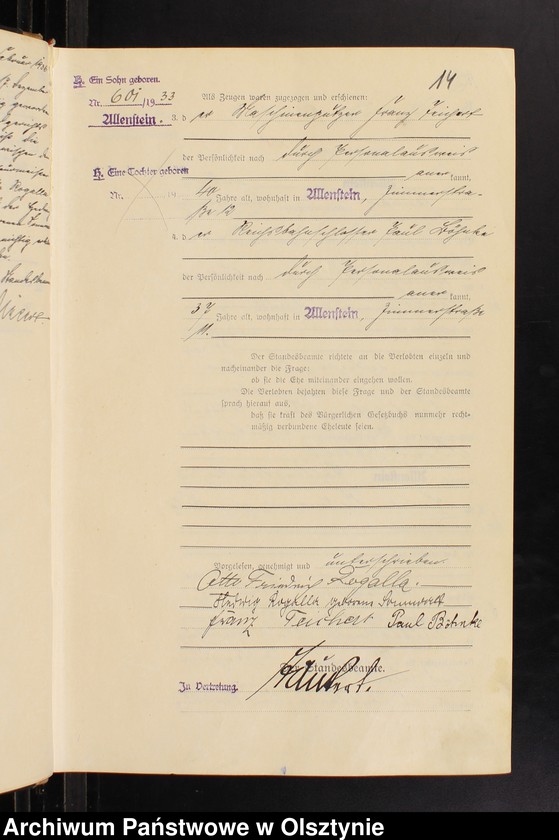 14
H. Ein Sohn geboren.
Nr. 601/1933
Allenstein.
H. Eine Tochter geboren
Nr. 19
Als Zeugen waren zugezogen und erschienen:
3. der Maschinenputzer Franz Teichert
der Persönlichkeit nach durch Personalausweis
anerkannt,
40 Jahre alt, wohnhaft in Allenstein, Zimmerstra-
ße 12
4. der Reichsbahnschlosser Paul Böhnke
der Persönlichkeit nach durch Personalausweis
anerkannt,
37 Jahre alt, wohnhaft in Allenstein, Zimmerstraße
11.
Der Standesbeamte richtete an die Verlobten einzeln und
nacheinander die Frage:
ob sie die Ehe miteinander eingehen wollen.
Die Verlobten bejahten diese Frage und der Standesbeamte
sprach hierauf aus,
daß sie kraft des Bürgerlichen Gesetzbuchs nunmehr recht-
mäßig verbundene Eheleute seien.
Vorgelesen, genehmigt und unterschrieben
Otto Friedrich Rogalla.
Hedwig Rogalla geborene
Franz Teichert Paul Böhnke
Der Standesbeamte.
In Vertretung.
Archiwum Państwowe w Olsztynie